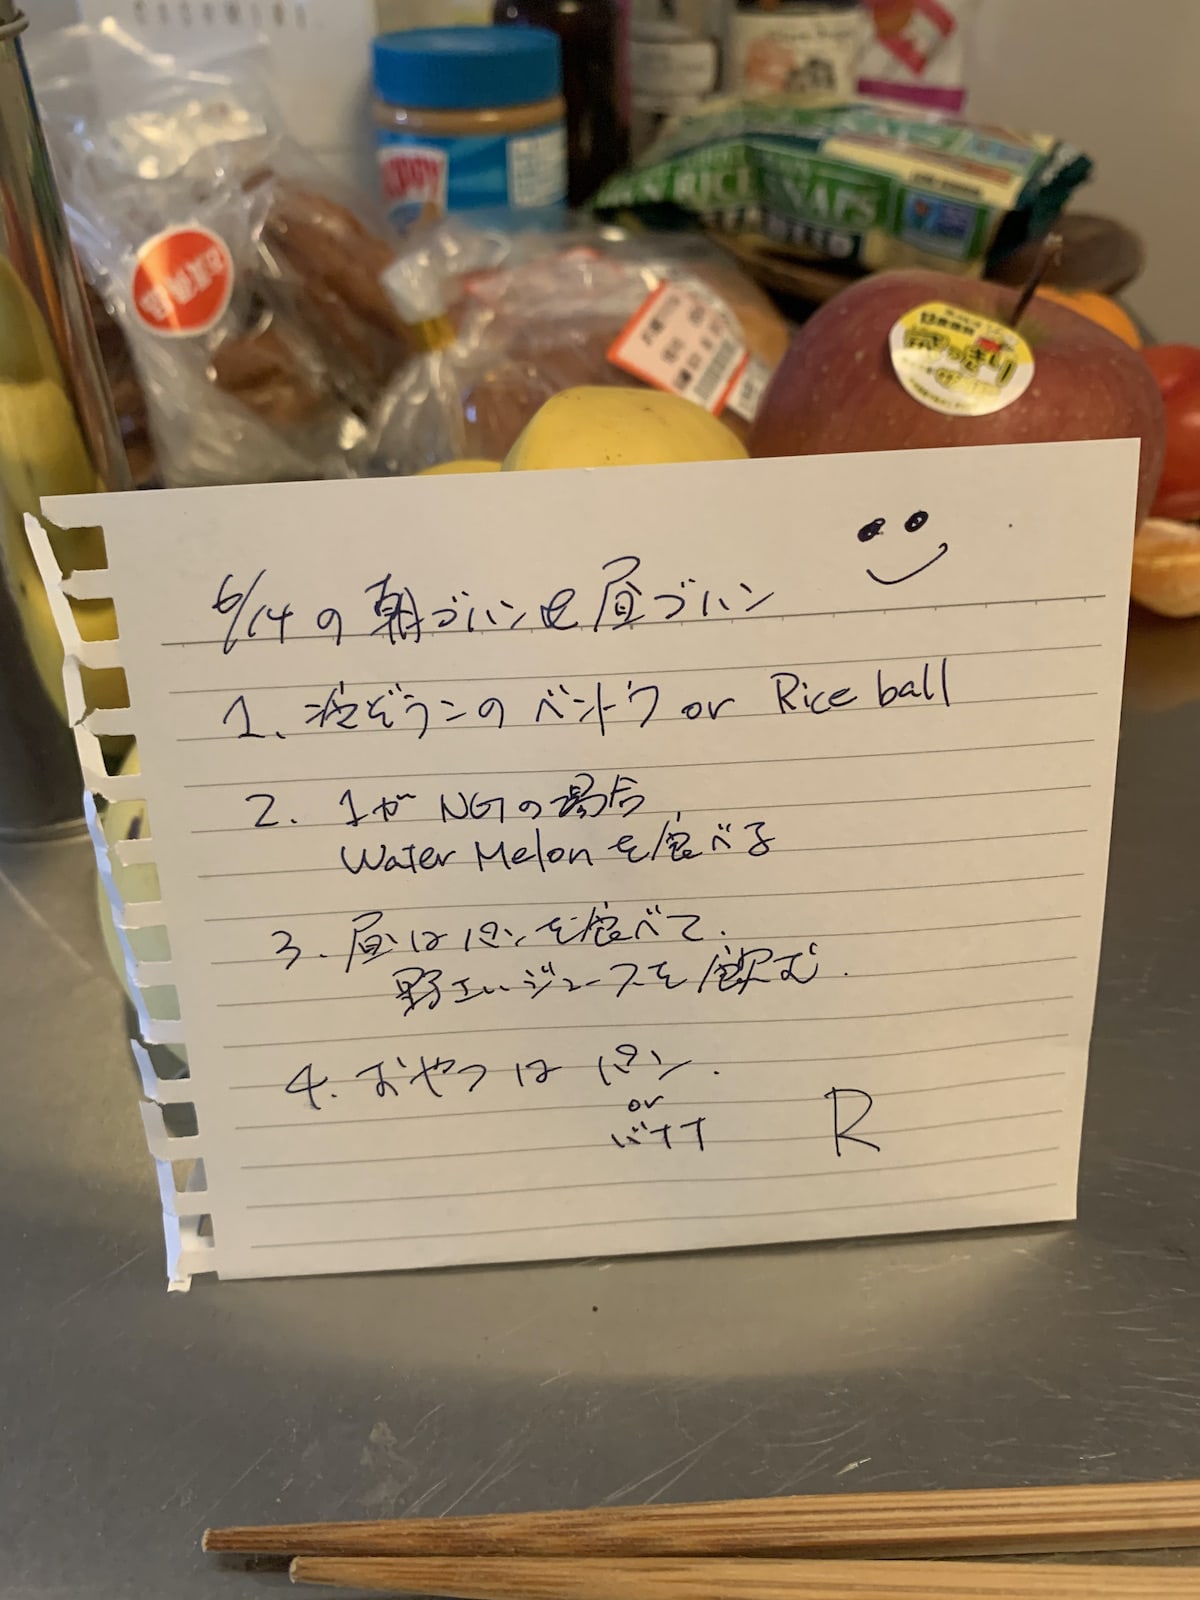 CASHMIRI
RICE SNAPS
6/14の朝ゴハンと昼ゴハン
1. 冷ぞうこのベントウ or Rice ball
2. 1がNGの場合
Water Melonを食べる
3. 昼はパンを食べて.
野エいジュースを飲む.
4. おやつはパン.
or
バナナ
R